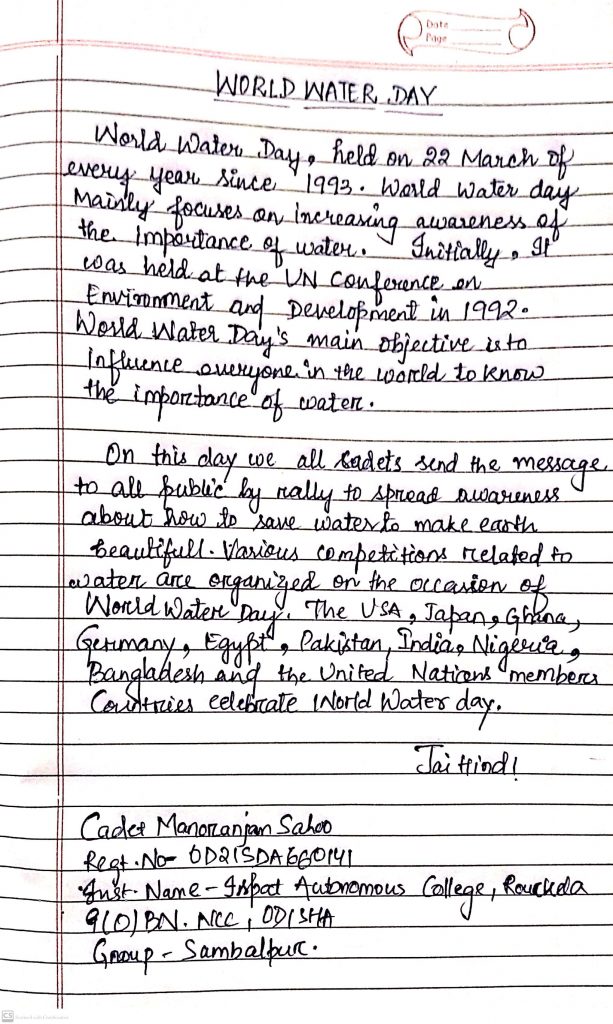 Date
Page
WORLD WATER DAY
World Water Day, held on 22 March of
every year since 1993. World Water day
Mainly focuses on increasing awareness of
the importance of water. Initially, It
was held at the UN Conference on
Environment and Development in 1992.
World Water Day's main objective is to
influence everyone in the world to know
the importance of water.
On this day we all cadets send the message
to all public by rally to spread awareness
about how to save water to make earth
beautifull. Various competitions related to
water are organized on the occasion of
World Water Day. The USA, Japan, Ghana,
Germany, Egypt, Pakistan, India, Nigeria,
Bangladesh and the United Nations members
Countries celebrate World Water day.
Jai Hind!
Cadet Manoranjan Sahoo
Regt. No- OD21SDA660141
Inst. Name - Ispat Autonomous College, Rourkela
9(O) BN. NCC, ODISHA
Group - Sambalpur.
CS